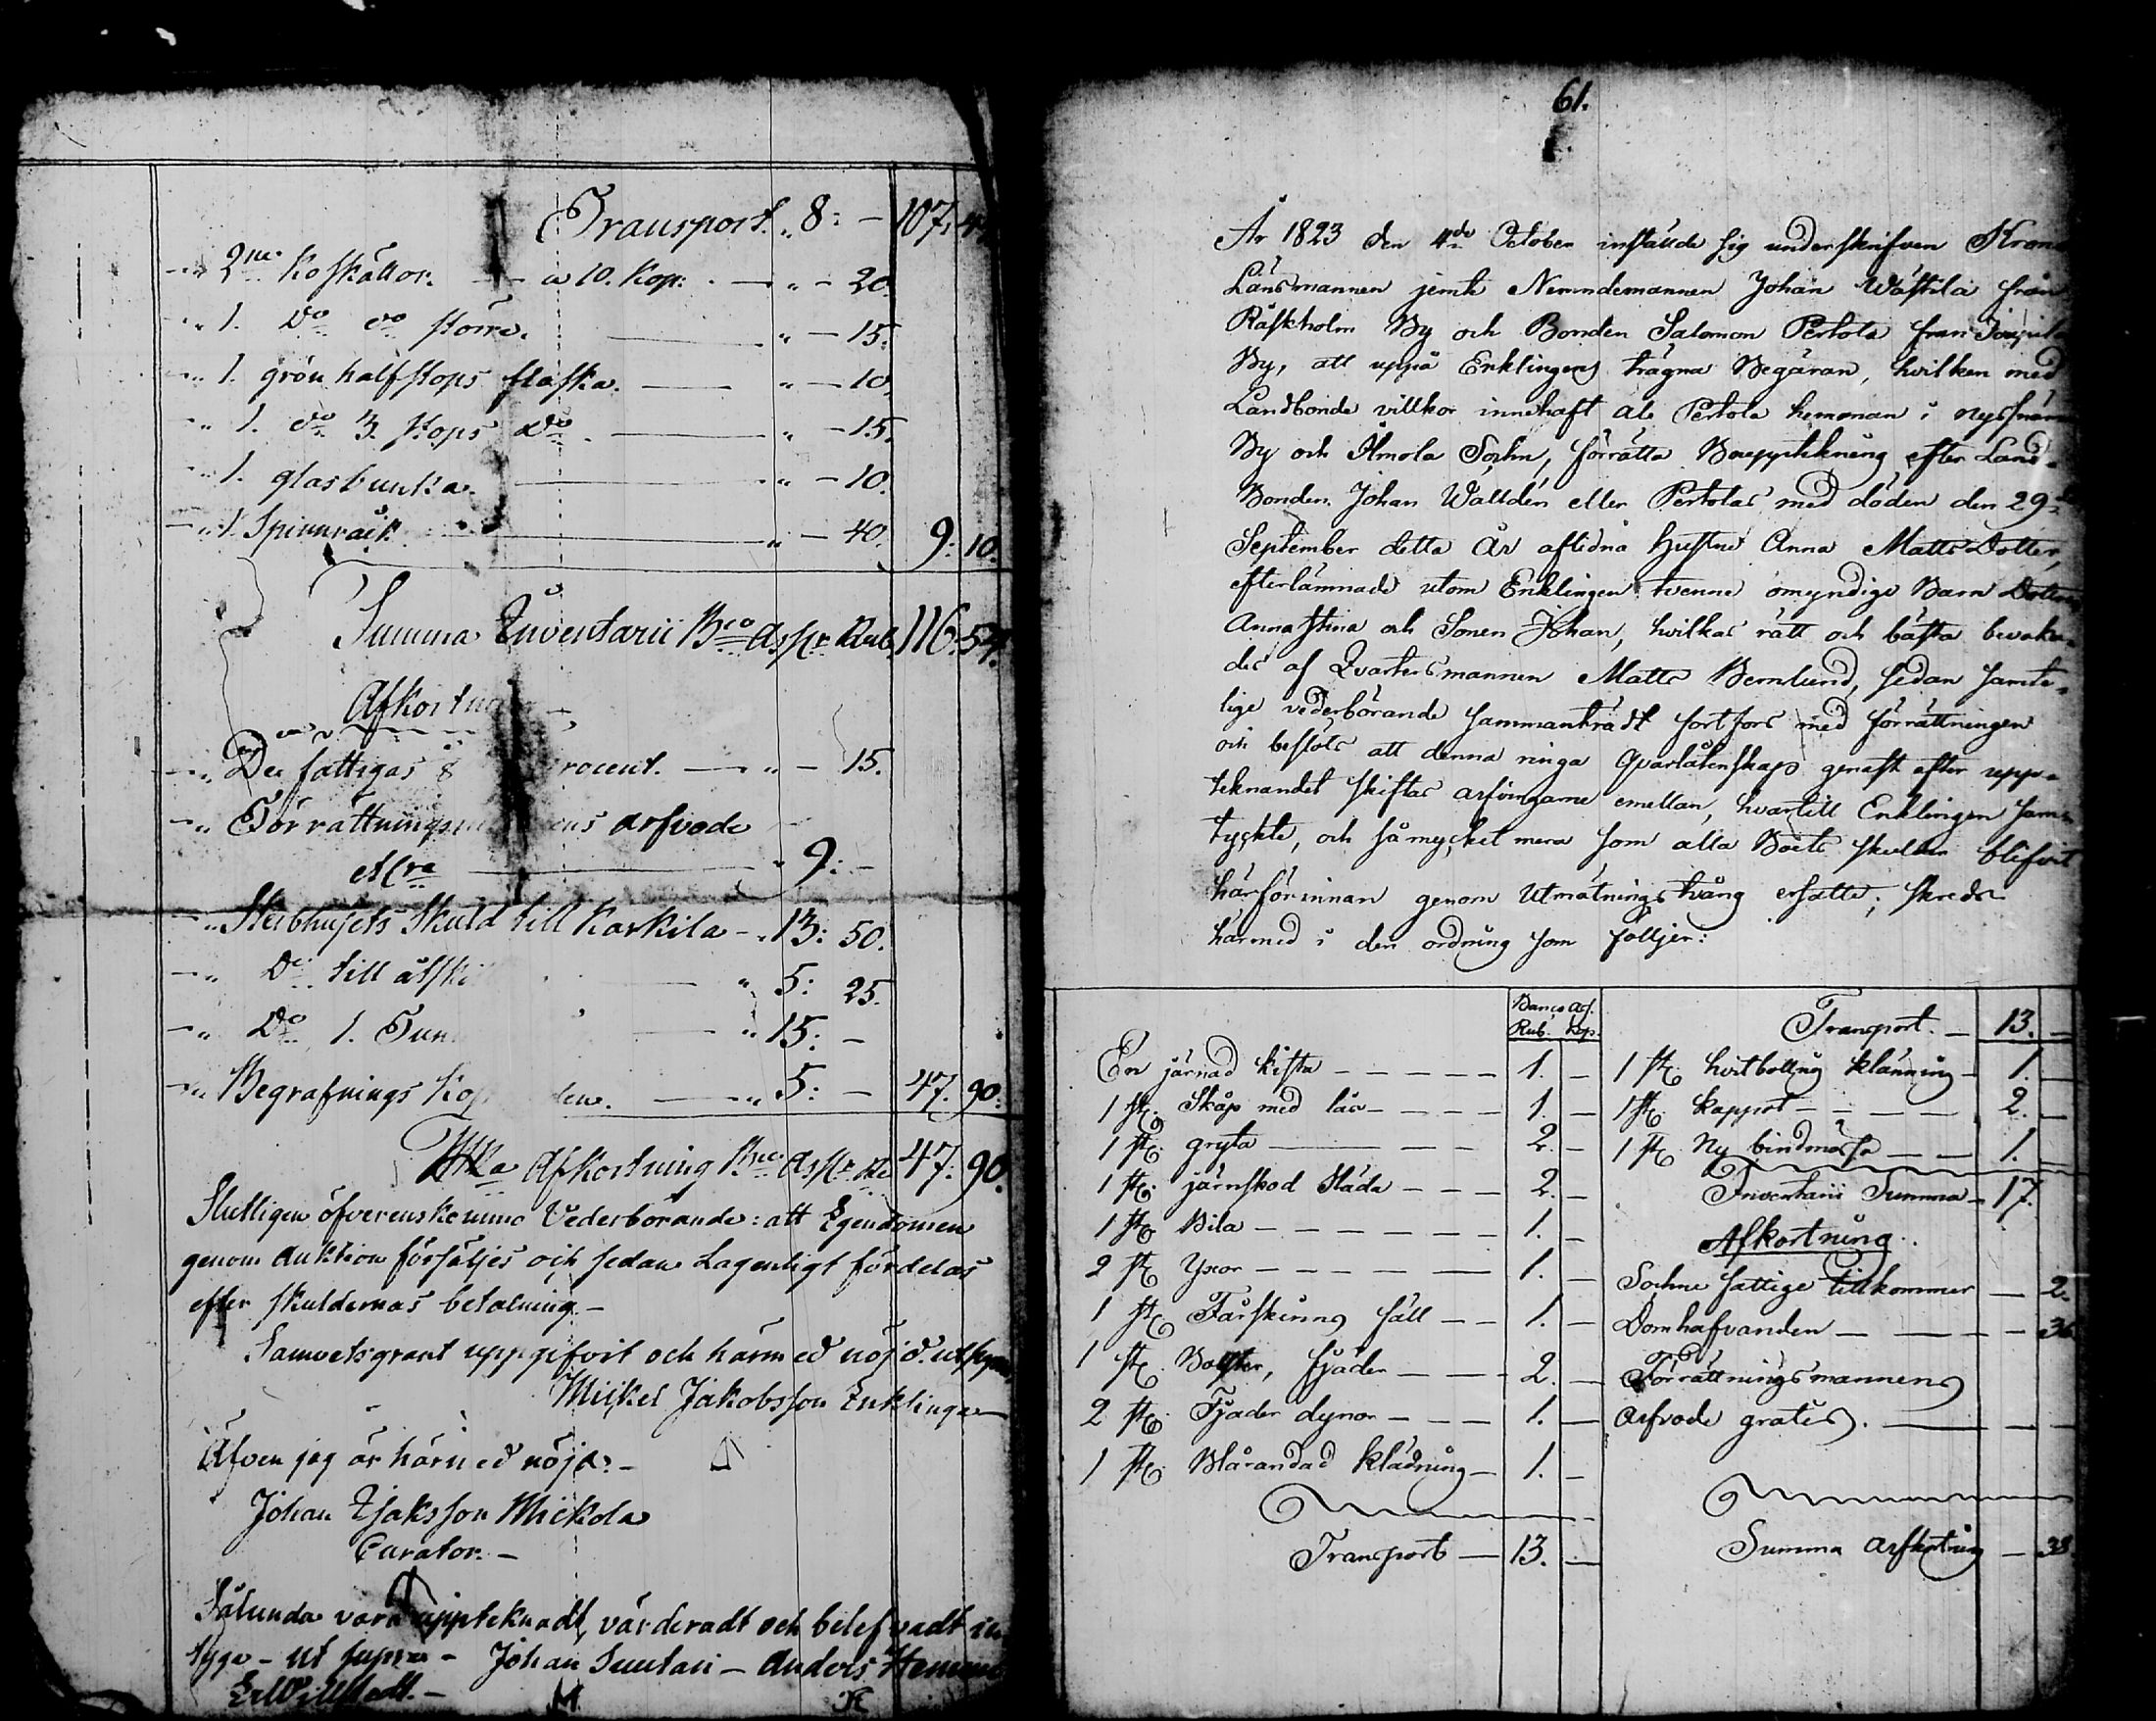 Transport. „ 8: — 107: 4
—„ 2ne Koskällor. — a 10. Kop: . — „ — 20.
—„ 1. Do do större. — „ — 15:
—„ 1. grön halfstops flaska. — „ — 10.
—„ 1. do 3. stops do. — „ — 15.
—„ 1. glasbunka. — „ — 10.
—„ 1. Spinnråck — „ — 40. 9: 10.
Summa Inventarii Bco Assr Rub. 116: 54.
Afkortn
—„ De fattigas 8 rocent. — „ — 15.
—„ Förrättningsm ens arfvode
— „ 9: —
—„ Sterbhusets Skuld till Karkila — „ 13: 50.
—„ Do till åtski — „ 5: 25.
—„ Do 1. Tun — „ 15: —
—„ Begrafnings Ko den. — „ 5: — 47. 90.
Afkortning Bco Assr 47: 90.
Slutligen öfverenskommo Vederbörande: att Egendomen
genom Auktion försäljes och sedan Lagenligt fördelas
efter skuldernas betalning. —
Samvetsgrant uppgifvit och härmed nöjd. ut supra
Mickel Jakobsson Enklinge
Äfven jag är härmed nöjd: —
Johan Isaksson Mickola
Curator. —
Sålunda vara uppteknadt, värderadt och belefvadt
tyga — ut supra — Johan Suutari — Anders
61.
År 1823 den 4de October instälde sig underskrifven Krono
Länsmannen jemte Nemndemannen Johan Wästilä från
Räskholm By och Bonden Salomon Pertola från
By, att uppå Enklingens trägna Begäran, hvilken med
Landbonde villkor innehaft ale Pertola hemman i nyssnämn
By och Ilmola Sochn, förrätta Bouppteckning efter Land-
Bonden Johan Walldén eller Pertolas med döden den 29de
September detta År aflidna Hustru Anna Matts Dotter,
efterlämnade utom Enklingen tvenne omyndige Barn Dottren
Anna Stina och Sonen Johan, hvilkas rätt och bästa bevaka-
des af Qvartersmannen Matts Bernlund, sedan samte-
lige vederbörande sammanträdt fortfors med förrättningen
och beslöts att denna ringa Qvarlåtenskap genast efter upp-
teknandet skiftas arfvingarne emellan, hvartill Enklingen sam-
tyckte, och så mycket mera som alla Boets skulder blifvit
härförinnan genom Utmätnings tvång ersatte; skreds
härmed i den ordning som följer:
Banco Ass.
Rub. Kop.
En järnad kista — — — — — 1. —
1 st. Skåp med lås — — — — 1. —
1 st. gryta — — — 2. —
1 st. järnskod Släda — — — 2. —
1 st. Bila — — — — — — 1. —
2 st. Yxor — — — — — 1. —
1 st. Fårskinns fäll — — 1. —
1 st. Bolster, fjäder — — — 2. —
2 st. Fjäder dynor — — — 1. —
1 st. Blårandad klädning — 1. —
Transport — 13. —
Transport. — 13. —
1 st. hvitbottnig klänning — 1. —
1 st. kappot — — — — 2. —
1 st. Ny bindmössa — — 1. —
Inventarii Summa — 17.
Afkortning.
Sochne fattige tillkommer — 2.
Domhafvanden — — — — 36
Förrättningsmannens
arfvode gratis. — — —
Summa Afkortning — 38